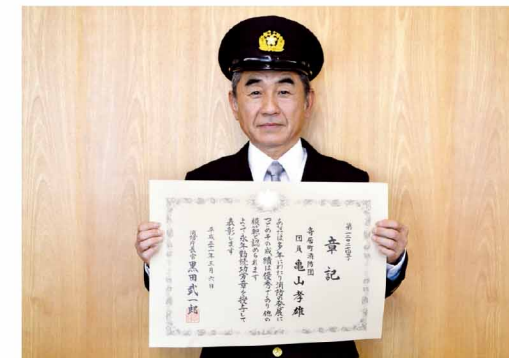 章記
消防団
団員 亀山孝雄
あなたは多年にわたり消防の発展に
つとめその成績は優秀であり他の
模範と認められます
よって永年勤続功労章を授与して
表彰します
平成三十一年三月六日
消防庁長官 黒田武一郎